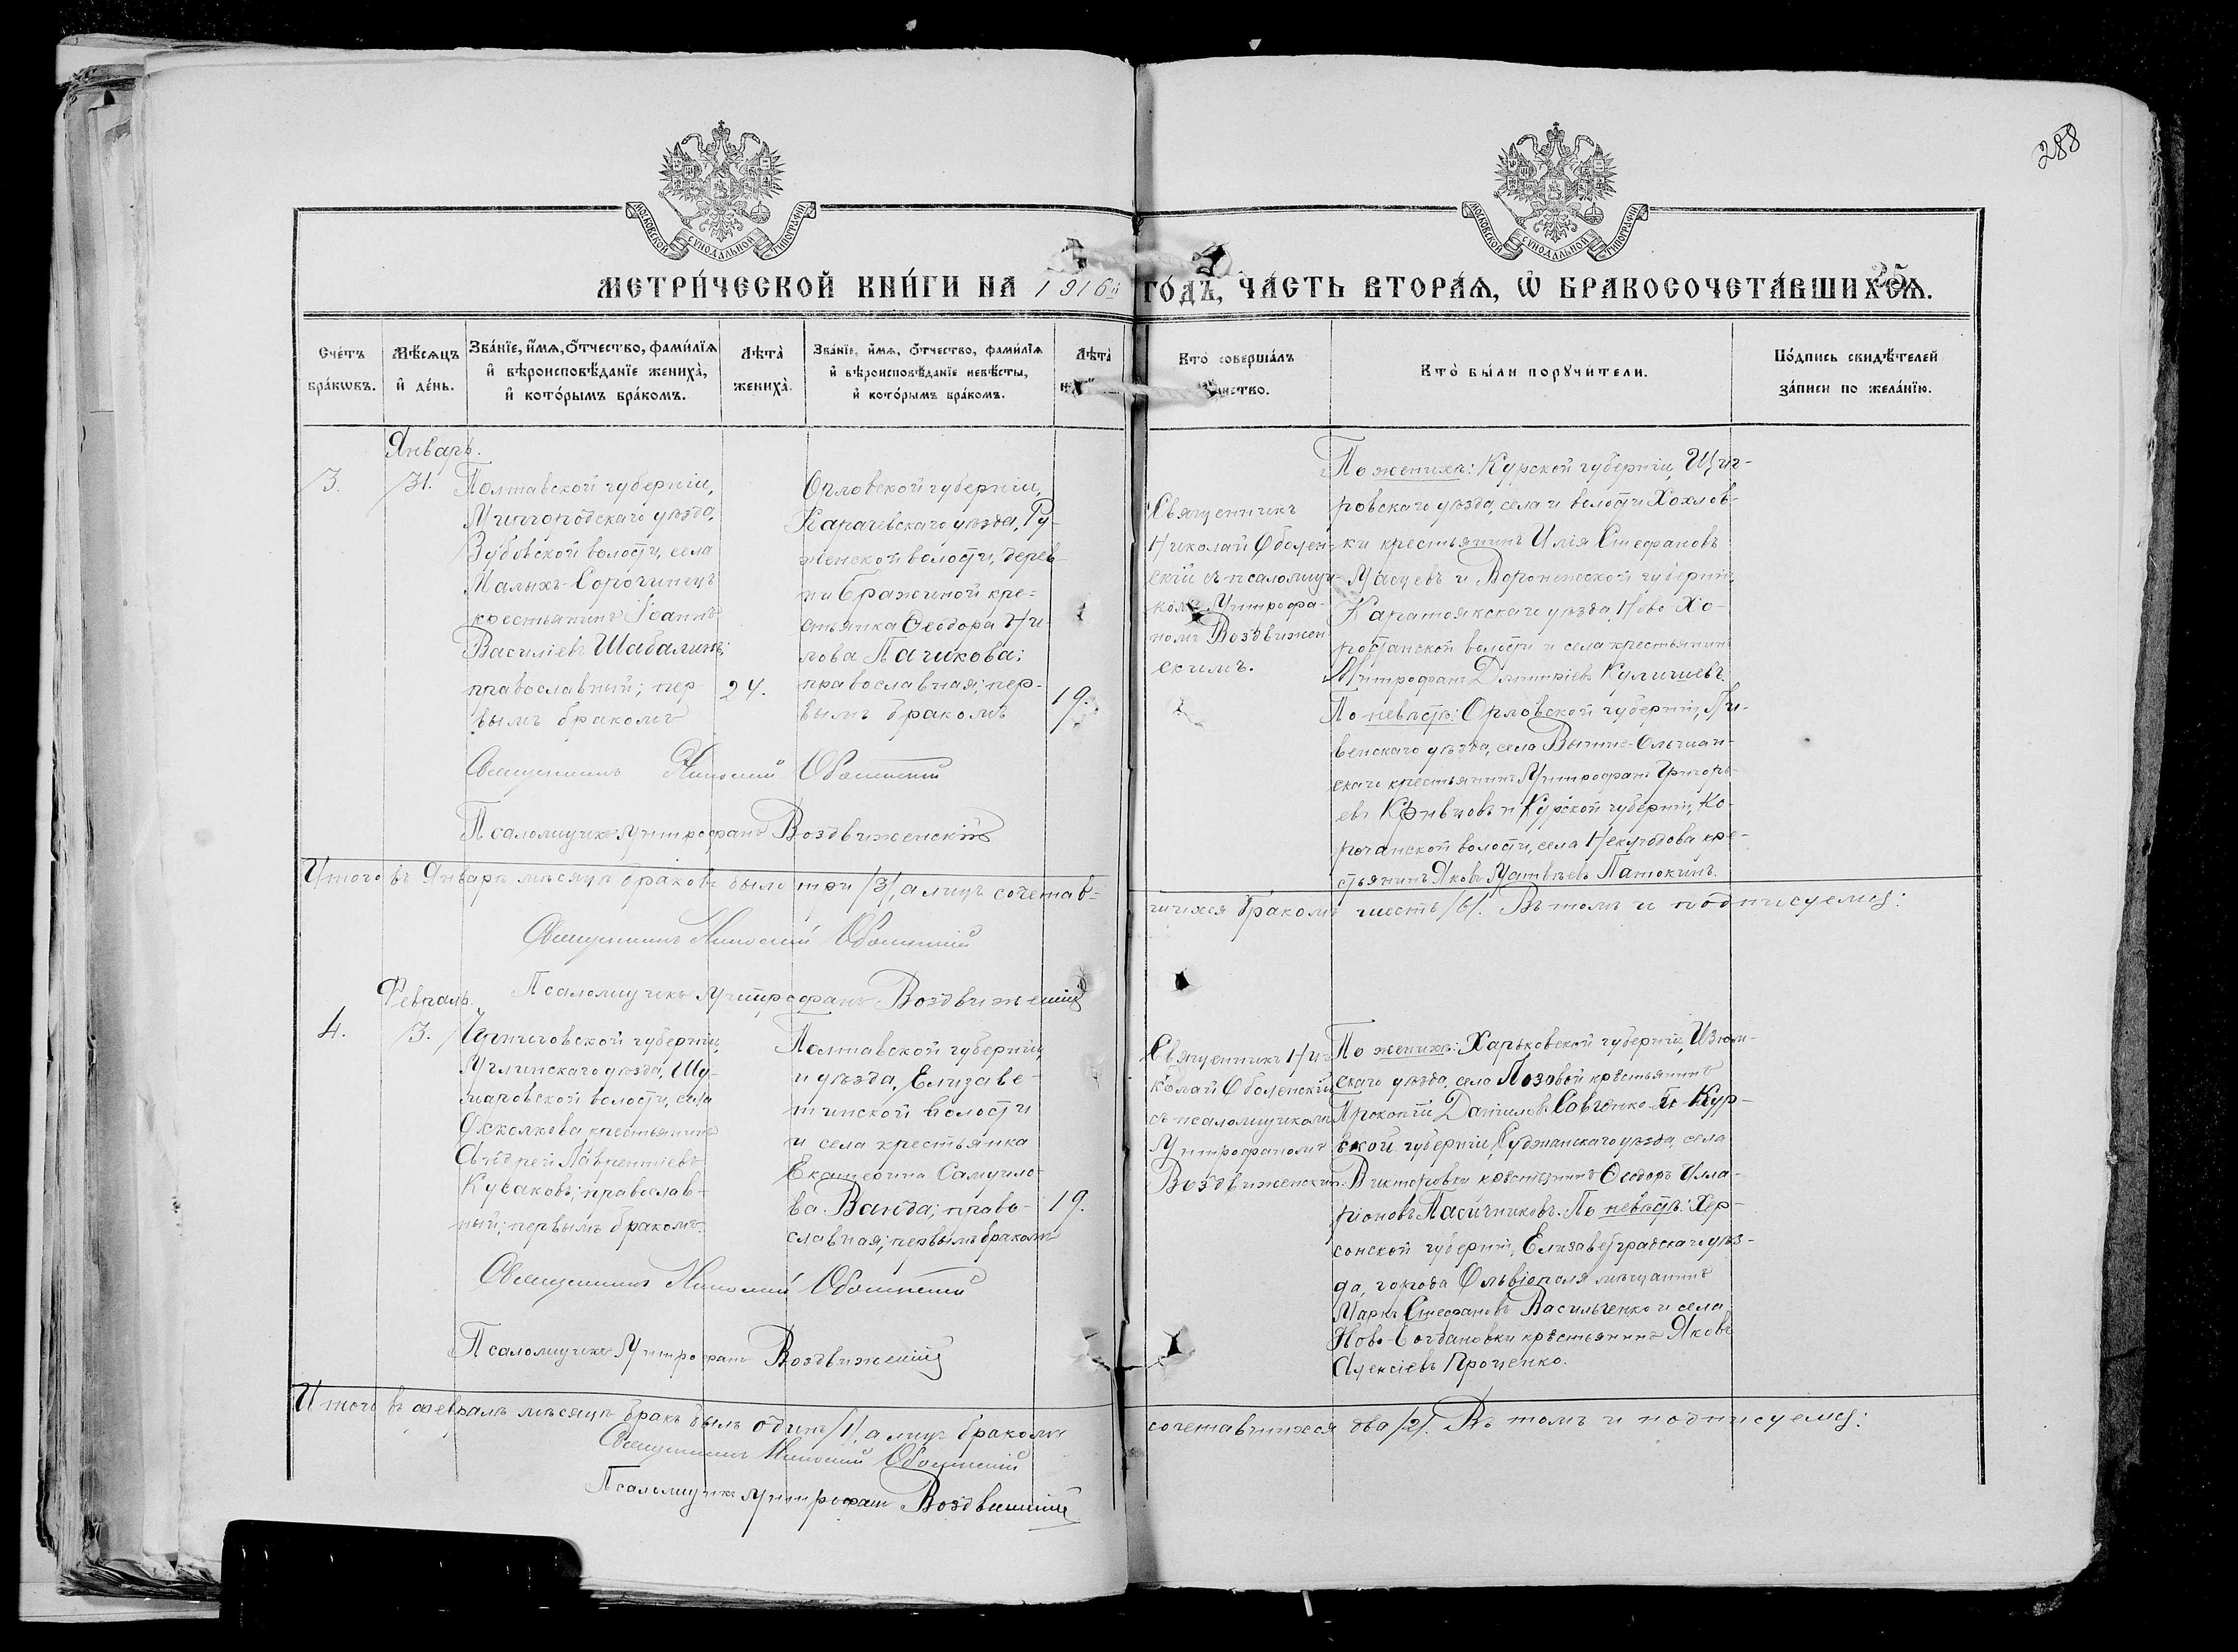 288
МОСКОВСКОЙ СУНОДАЛЬНОЙ ТИПОГРАФІИ
МОСКОВСКОЙ СУНОДАЛЬНОЙ ТИПОГРАФІИ
МЕТРИ́ЧЕСКОЙ КНИ́ГИ НА 1916й ГО́ДЪ, ЧА́СТЬ ВТОРА́Я, Ѡ҆ БРАКОСОЧЕТА́ВШИХСЯ.
25
Сче́тъ
бра́кѡвъ.
Мѣ́сяцъ
и҆ де́нь.
Зва́нїе, и҆́мя, ѻ҆́тчество, фами́лїя
и҆ вѣроисповѣ́данїе жениха̀,
и҆ кото́рымъ бра́комъ.
Лѣта̀
жениха̀.
Зва́нїе, и҆́мя, ѻ҆́тчество, фами́лїя
и҆ вѣроисповѣ́данїе невѣ́сты,
и҆ кото́рымъ бра́комъ.
Лѣта̀
Кто̀ соверша́лъ
Кто̀ бы́ли порꙋчи́тели.
По́дпись свидѣ́телей
за́писи по жела́нїю.
Январь.
3.
31.
Полтавской губерніи,
Миргородскаго уѣзда,
Зубовской волости, села
Малыхъ-Сорочинецъ
крестьянинъ Іоаннъ
Василіевъ Шабалинъ;
православный; пер-
вымъ бракомъ
24.
Орловской губерніи,
Карачевскаго уѣзда, Ру-
женской волости, дерев-
ни Бражиной кре=
стьянка Ѳеодора Ни-
лова Пачикова;
православная; пер-
вымъ бракомъ
19.
Священникъ
Николай Оболен-
скій съ псаломщи-
комъ Митрофа-
номъ Воздвижен-
скимъ.
По женихѣ: Курской губерніи, Щиг-
ровскаго уѣзда, села и волости Хохлов-
ки крестьянинъ Илія Стефановъ
Масуевъ и Воронежской губерніи,
Каратоякскаго уѣзда, Ново-Хо-
ростанской волости и села крестьянинъ
Митрофанъ Димитріевъ Куличиевъ.
По невѣстѣ: Орловской губерніи, Ли-
венскаго уѣзда, села Вышне-Ольшан-
скаго крестьянинъ Митрофанъ Григорь-
евъ Кривцовъ и Курской губерніи, Ко-
рочанской волости, села Неклюдова кре-
стьянинъ Яковъ Матвѣевъ Патокинъ.
Священникъ Николай Оболенскій
Псаломщикъ Митрофанъ Воздвиженскій
Итого въ Январѣ мѣсяцѣ браковъ было три /3/, а лицъ сочетав-
шихся бракомъ шесть /6/. Въ томъ и подписуемся:
Священникъ Николай Оболенскій
Псаломщикъ Митрофанъ Воздвиженскій
Февраль.
4.
3.
Черниговской губерніи,
Мглинскаго уѣзда, Шу-
маровской волости, села
Осколкова крестьянинъ
Андрей Лаврентіевъ
Кусаковъ; православ-
ный; первымъ бракомъ.
Полтавской губерніи,
и уѣзда, Елизаве-
тинской волости
и села крестьянка
Екатерина Самуило-
ва Ванда; право-
славная; первымъ бракомъ
19.
Священникъ Ни-
колай Оболенскій
съ псаломщикомъ
Митрофаномъ
Воздвиженскимъ.
По женихѣ: Харьковской губерніи, Изюм-
скаго уѣзда, села Лозовой крестьянинъ
Прокопій Даніиловъ Савченко и Кур-
ской губерніи, Суджанскаго уѣзда, села
Викторовки крестьянинъ Ѳеодоръ Илла-
ріоновъ Пасичниковъ. По невѣстѣ: Хер-
сонской губерніи, Елизаветградскаго уѣз-
да, города Ольвіополя мѣщанинъ
Маркъ Стефановъ Васильченко и села
Ново-Богдановки крестьянинъ Яковъ
Алексіевъ Проценко.
Священникъ Николай Оболенскій
Псаломщикъ Митрофанъ Воздвиженскій
Итого въ февралѣ мѣсяцѣ бракъ былъ одинъ /1/, а лицъ бракомъ
сочетавшихся два /2/. Въ томъ и подписуемся:
Священникъ Николай Оболенскій
Псаломщикъ Митрофанъ Воздвиженскій